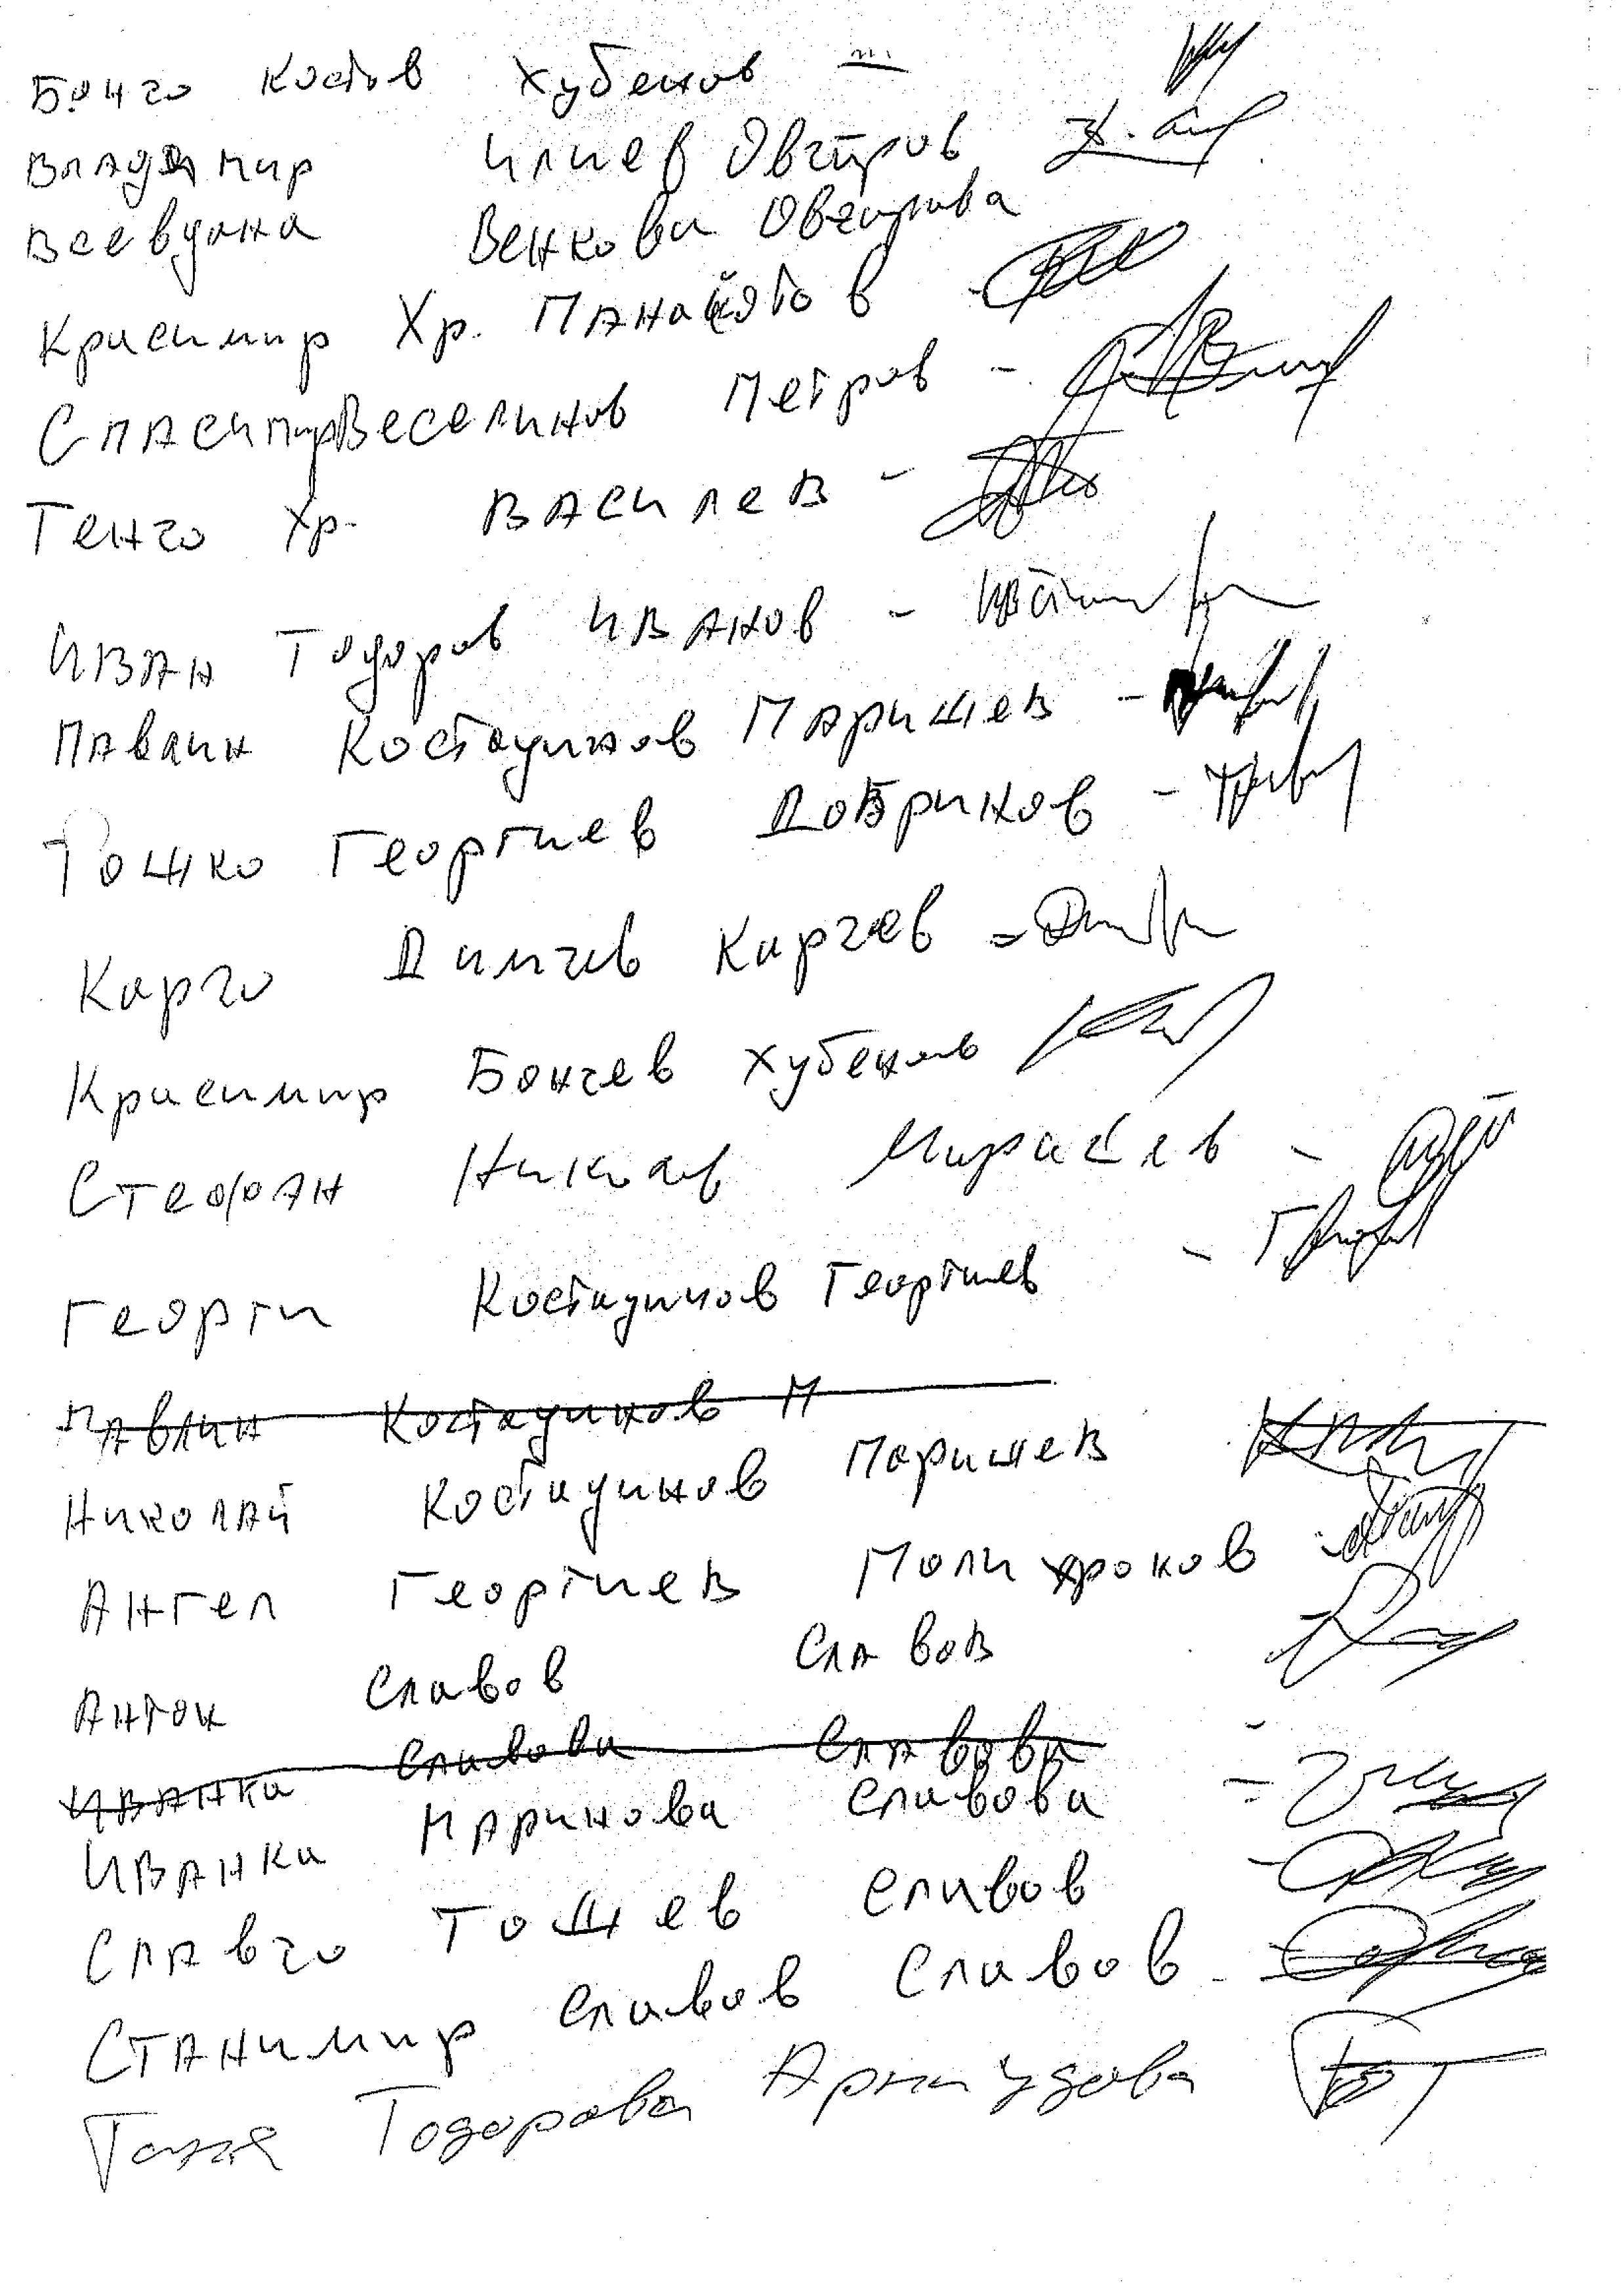 Бончо Костов Хубенов
Владимир Илиев Овчаров
Венкова Овчарова
Красимир Хр. Панайотов
Спасимир Веселинов Петров -
Тенчо Хр. Василев -
Иван Тодоров Иванов -
Павлин Костадинов Паришев -
Тошко Георгиев Добринов -
Карчо Димчев Карчев -
Красимир Бончев Хубенов
Стефан Николов -
Георги Костадинов Георгиев -
Павлин Костадинов П
Николай Костадинов Паришев
Ангел Георгиев Полихронов -
Антон Славов Славов
Иванка Славова Славова -
Иванка Маринова Славова -
Славчо Тошев Славов -
Станимир Славов Славов -
Таня Тодорова Армудова